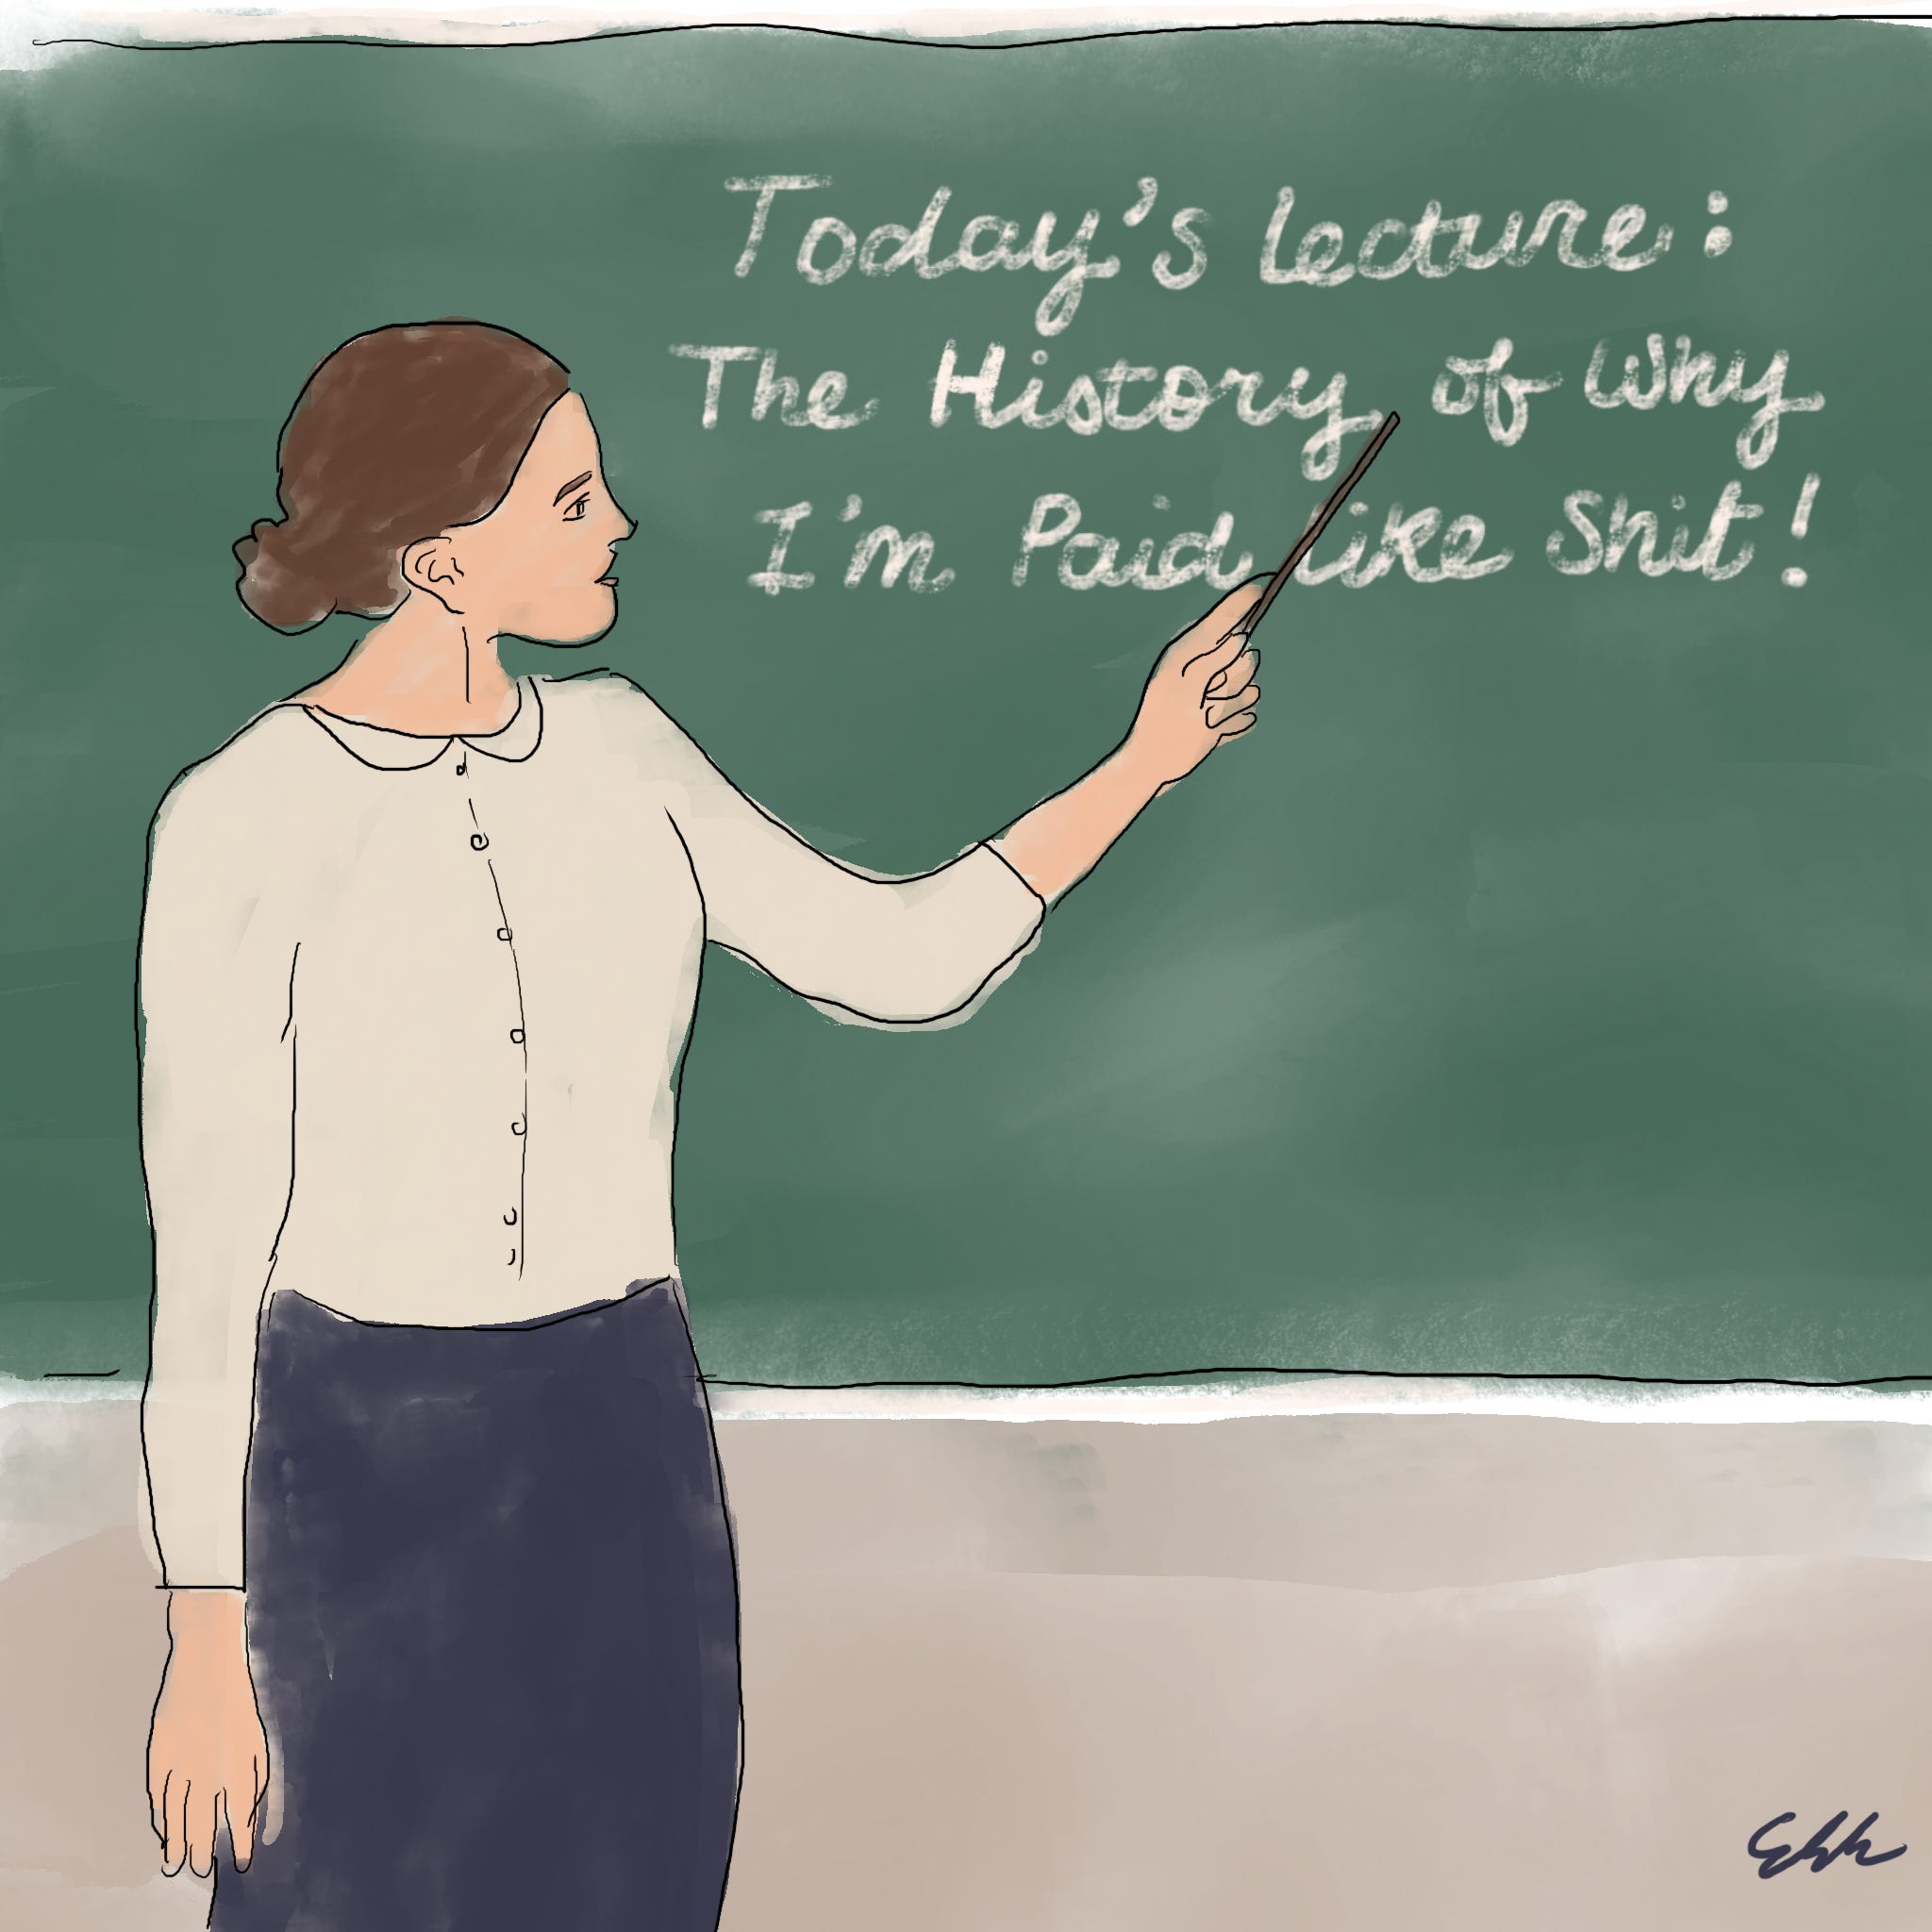 Today's lecture:
The History of Why
I'm Paid like Shit!